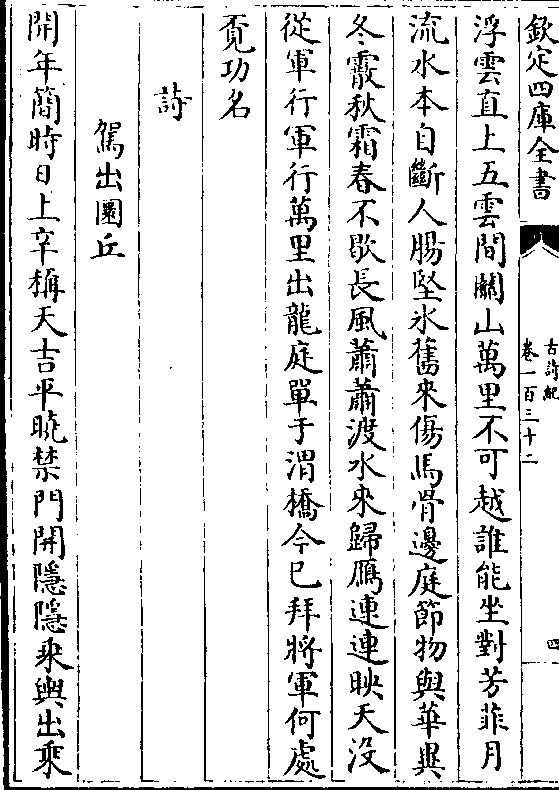 欽定四庫全書
古詩紀
卷一百三十二
四
浮雲直上五雲間關山萬里不可越誰能坐對芳菲月
流水本自斷人腸堅氷舊來傷馬骨邊庭節物與華異
冬霰秋霜春不歇長風蕭蕭渡水來歸鴈連連映天没
從軍行軍行萬里出龍庭單于渭橋今已拜將軍何處
覓功名
詩
駕出圜丘
開年簡時日上辛稱天吉平曉禁門開隱隱乘輿出乘